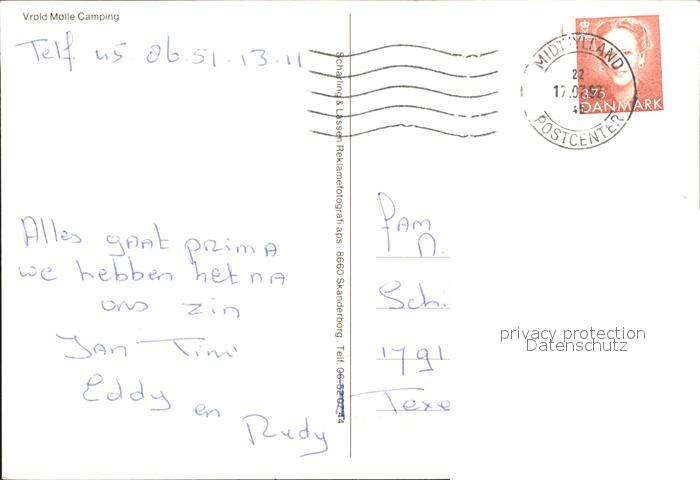 Vrold Mølle Camping
Telf 45.06.51.13.11
Alles gaat prima
we hebben het na
ons zin
Jan Timi
Eddy en
Rudy
Scharling & Lassen Reklamefotografi aps . 8660 Skanderborg . Telf.
MIDTJYLLAND
22
POSTCENTER
DANMARK
Fam
Schi
1791
Texe
privacy protection
Datenschutz